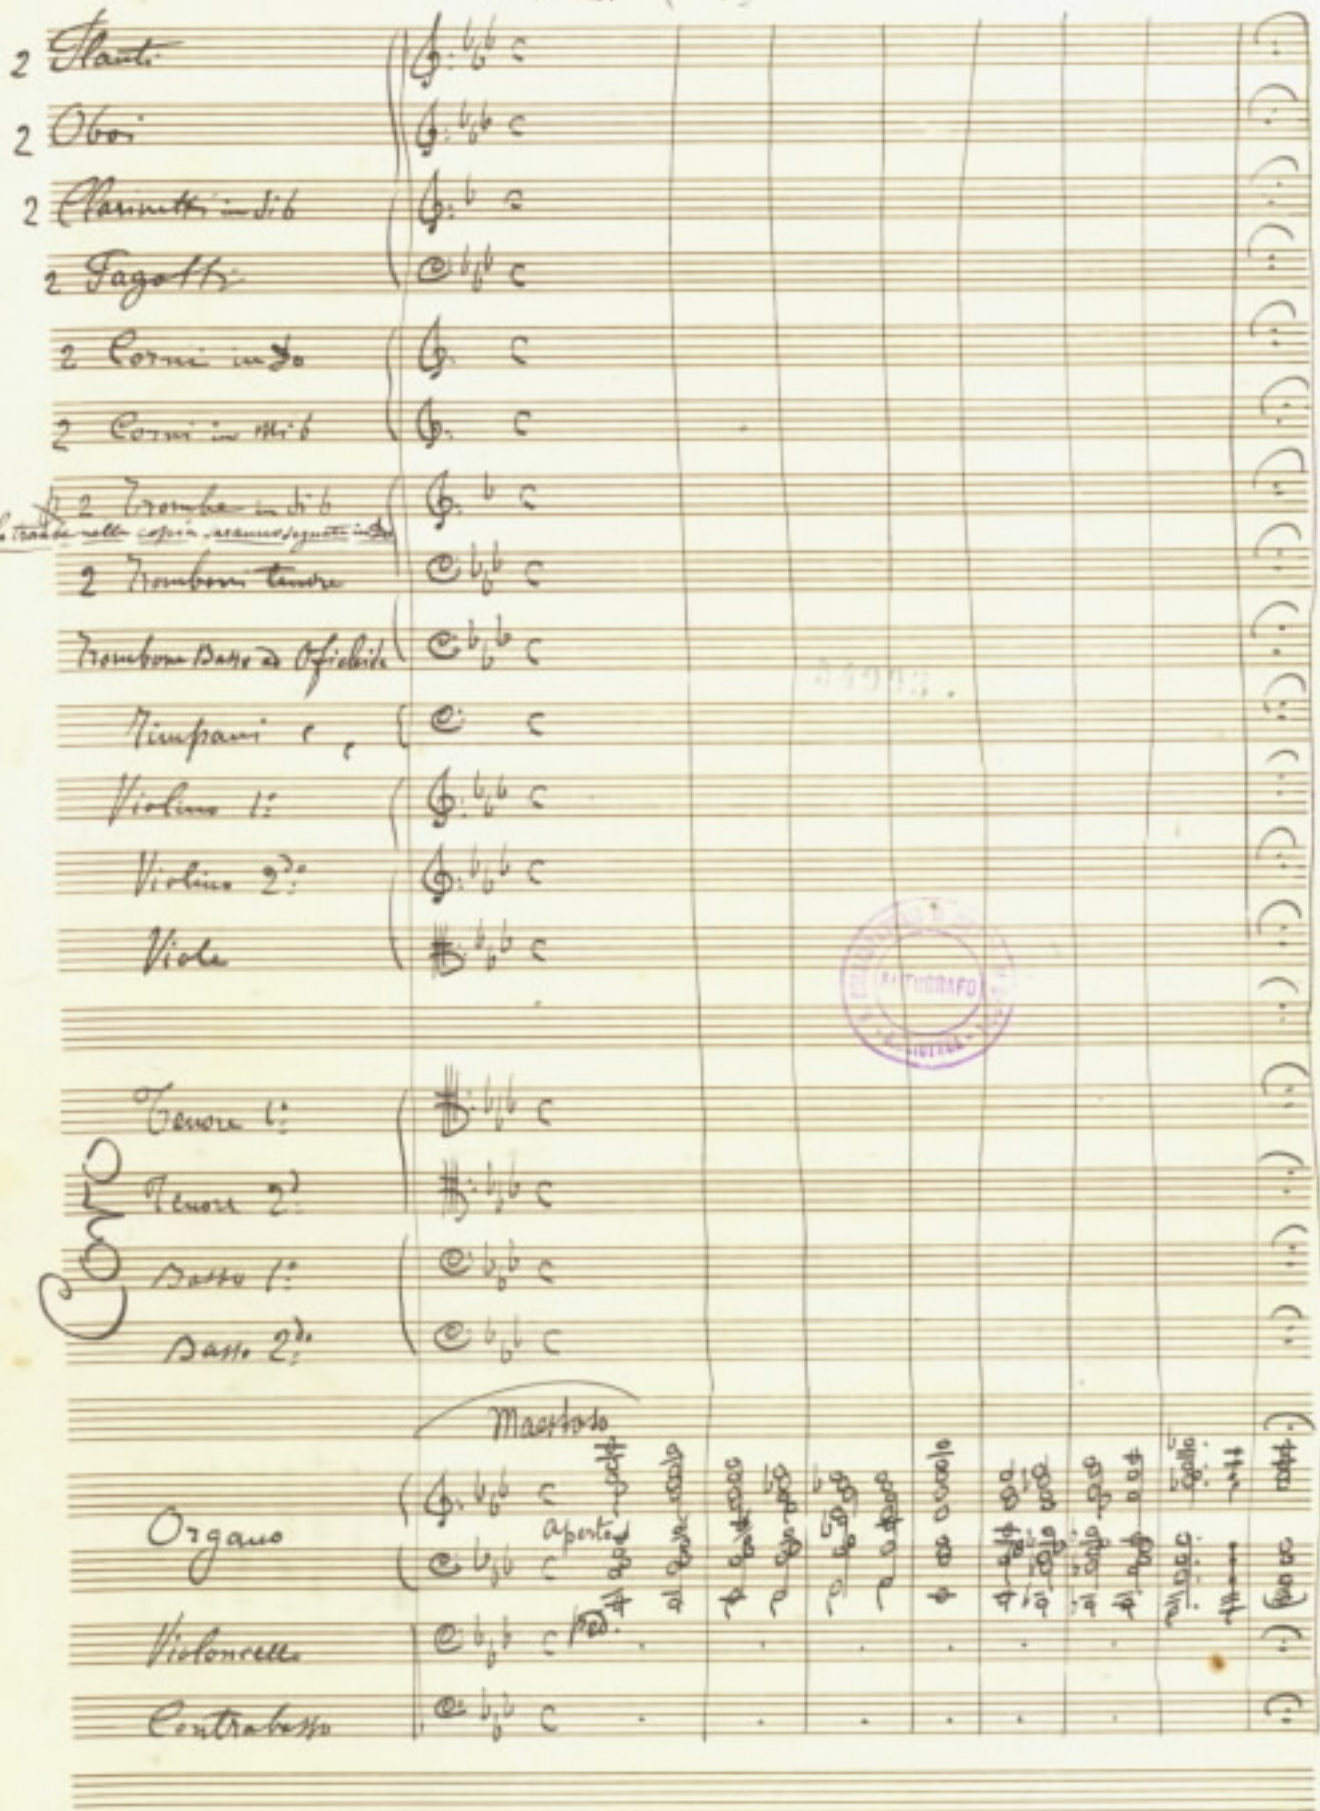 2 Flauti
2 Oboi
2 Clarinetti in Si b
2 Fagotti
2 Corni in Do
2 Corni in Mi b
2 Trombe in Si b
nella copia saranno segnate in Do
2 Tromboni tenore
Trombone Basso ed Oficleide
Timpani
Violino 1º
Violino 2do
Viole
AUTOGRAFO
Coro
Tenore 1º
Tenore 2do
Basso 1º
Basso 2do
Maestoso
Organo
aperto
Ped.
Violoncello
Contrabasso